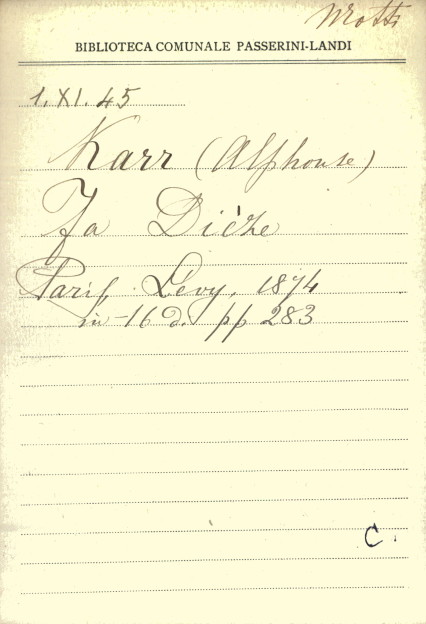 Motti
BIBLIOTECA COMUNALE PASSERINI-LANDI
1. XI. 45
Karr (Alphonse)
La Dièze
Paris, Lévy, 1874
in-16 d. pp 283
C.